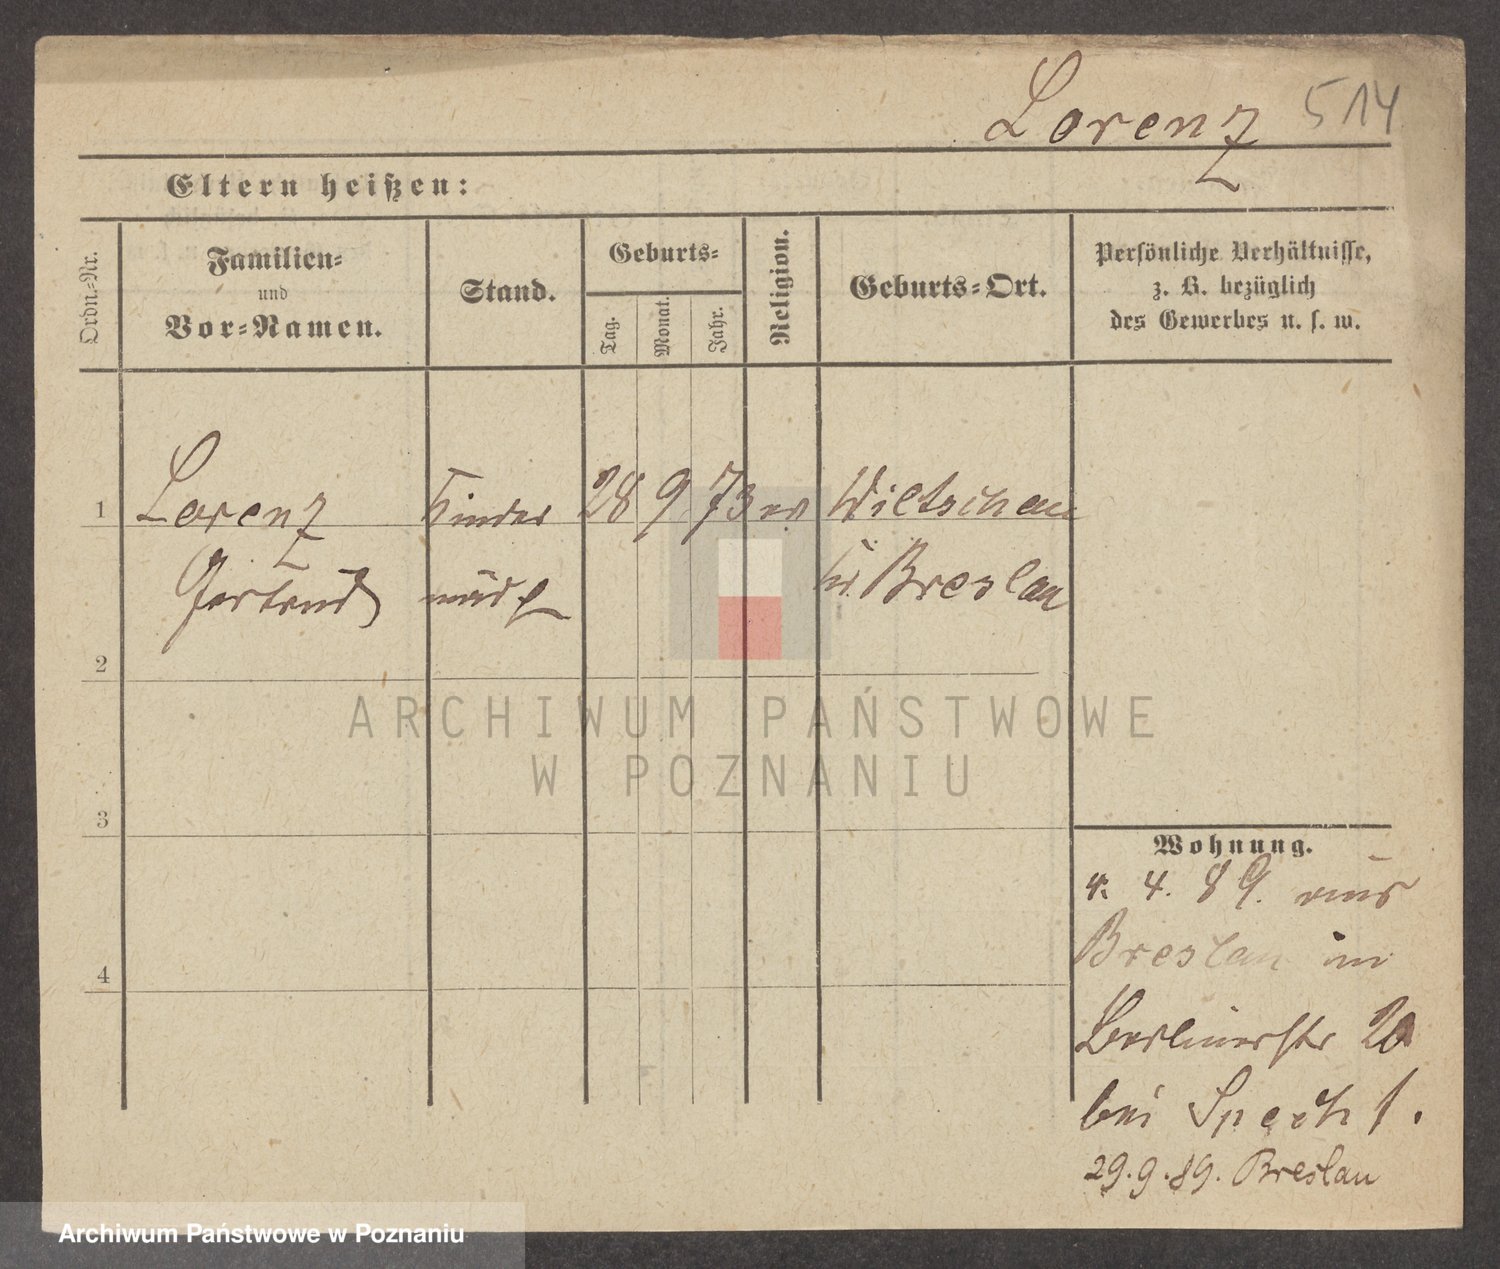 Lorenz 514
Eltern heißen:
Ordn.-Nr.
Familien-
und
Vor-Namen.
Stand.
Geburts-
Tag.
Monat.
Jahr.
Religion.
Geburts-Ort.
Persönliche Verhältnisse,
z. B. bezüglich
des Gewerbes u. s. w.
1 Lorenz Kinder 28 9 73 ev Wiltschau
Gertrud mädch Kr. Breslau
2
3
4
Wohnung.
4. 4. 89. aus
Breslau in
Berlinerstr 20
bei Specht.
29.9.89. Breslau
ARCHIWUM PAŃSTWOWE
W POZNANIU
Archiwum Państwowe w Poznaniu